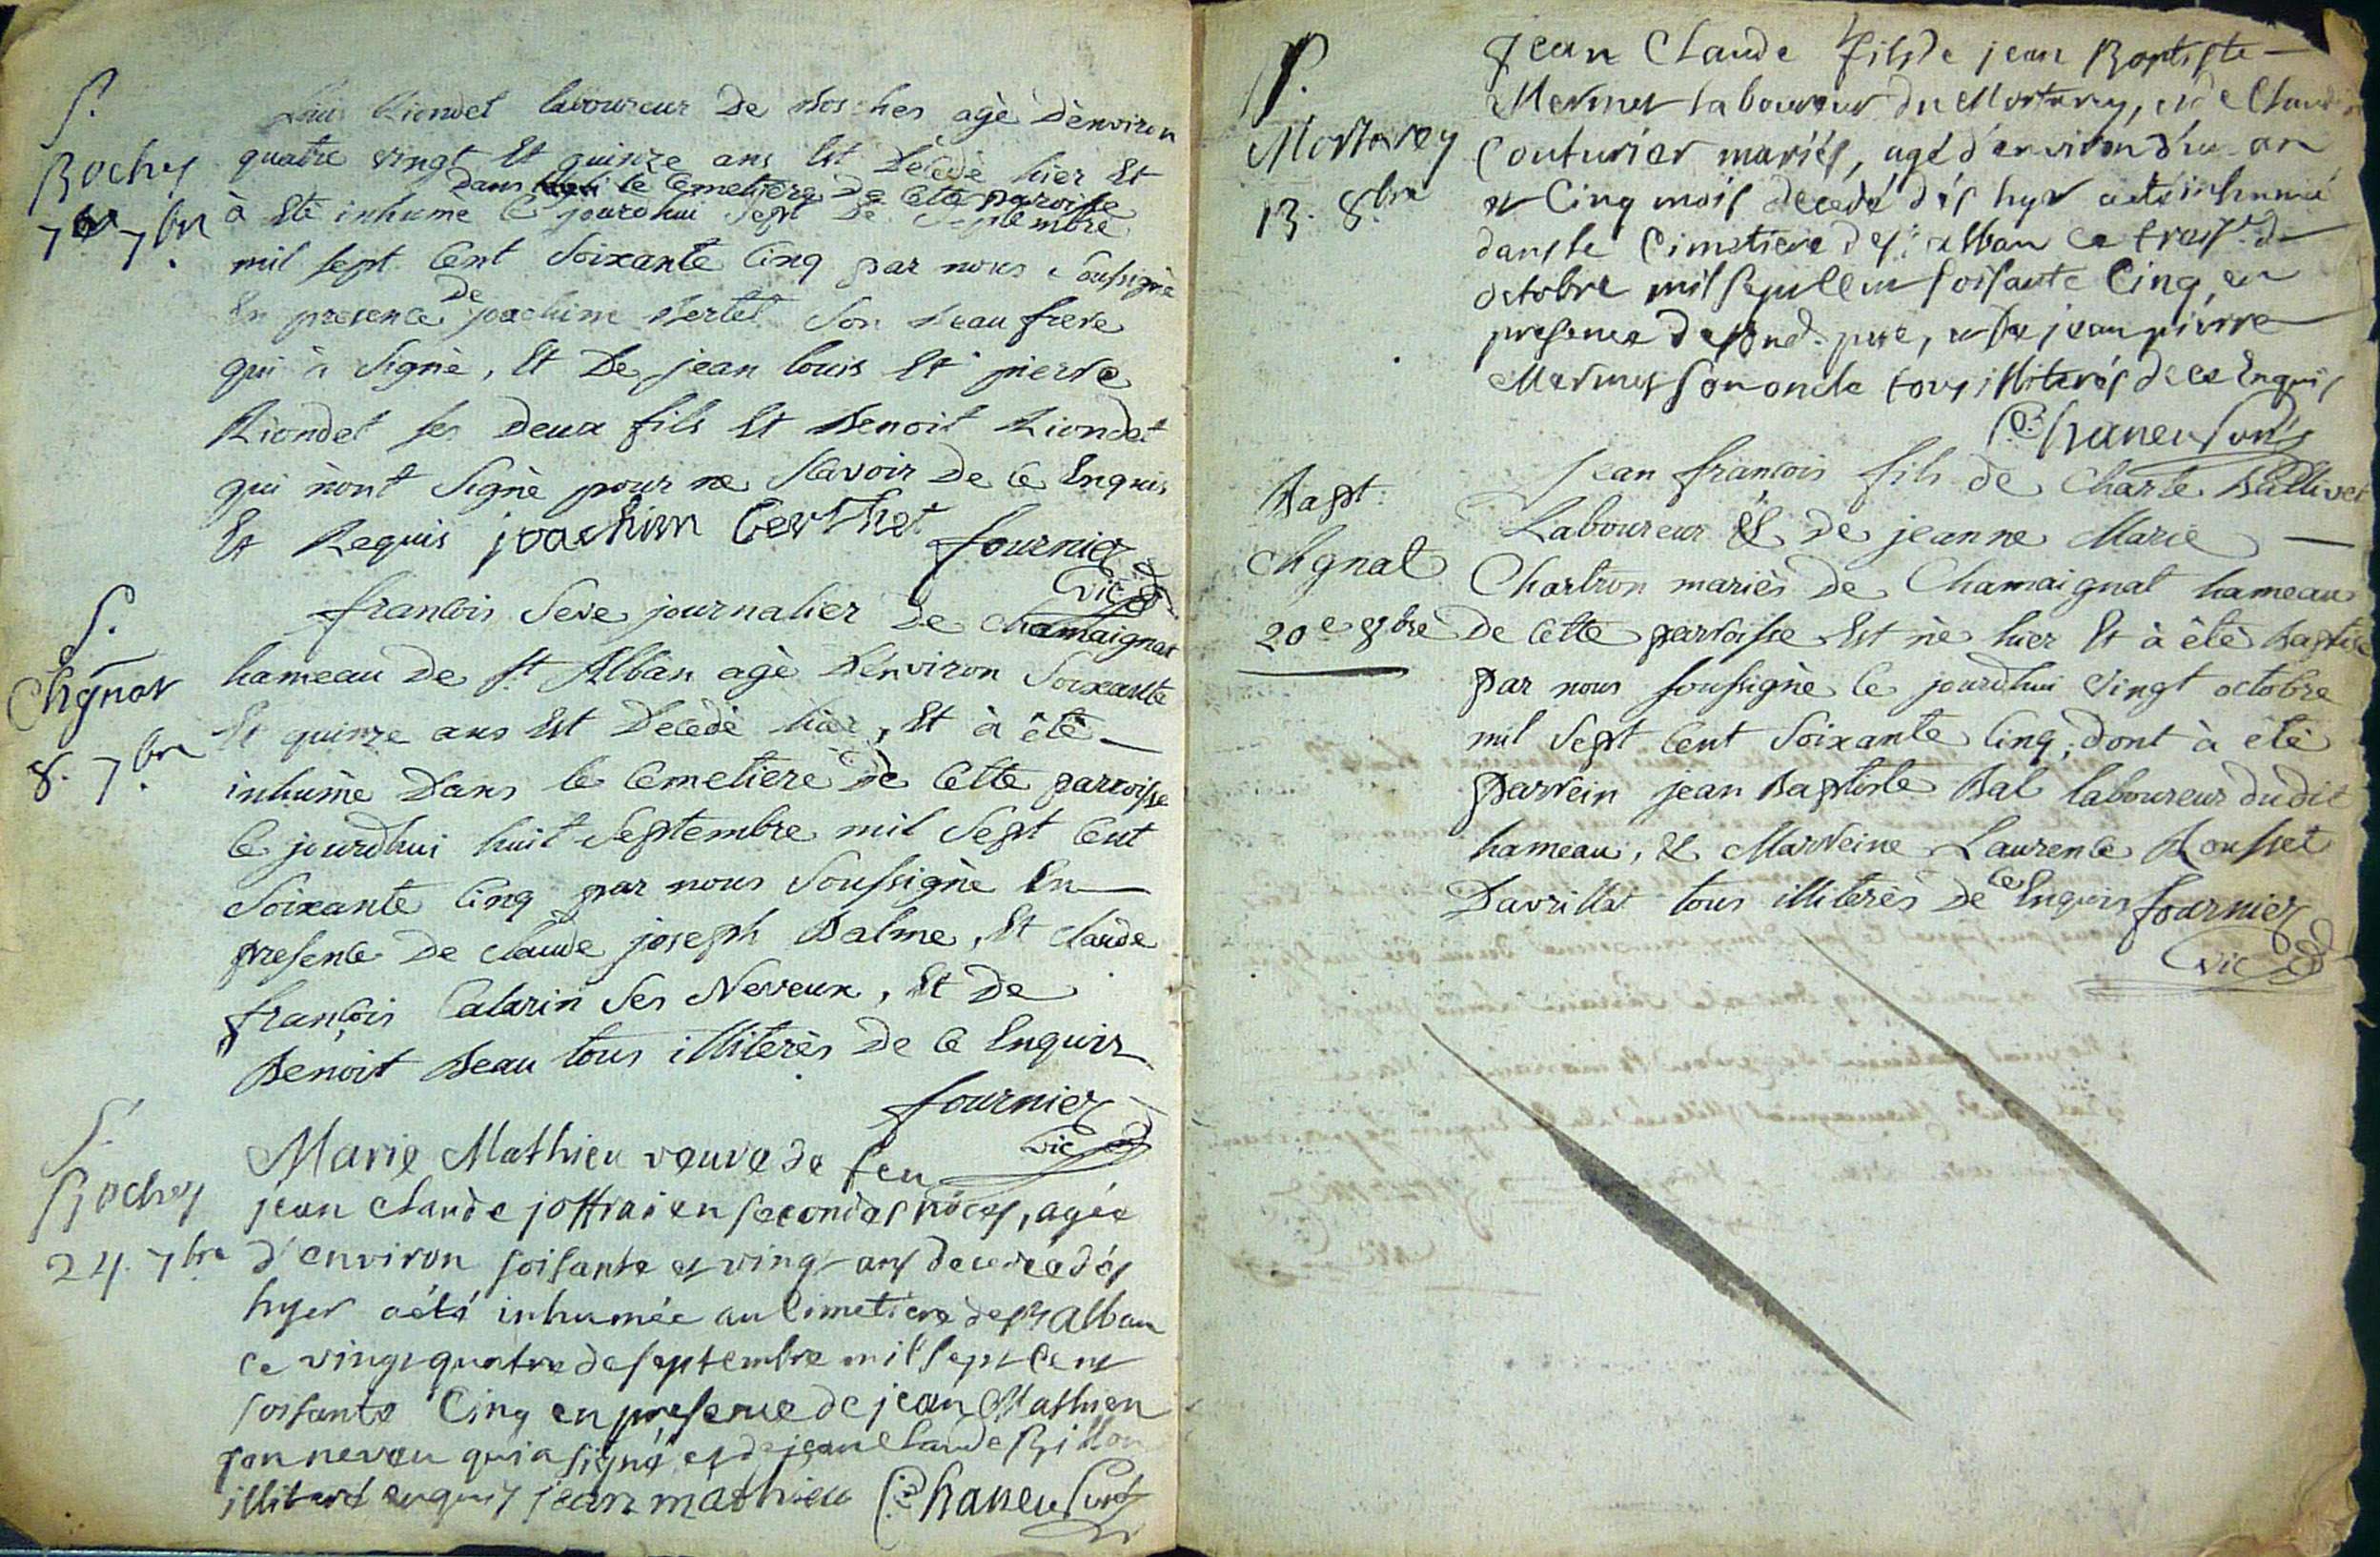 S.
Boches
7 7bre
Riondet laboureur De Bosches agè D'environ
quatre vingt Et quinze ans Est Decedé hier Et
Dans le Cemetiere De Cette paroisse
à Eté inhumé Ce jourdhui Sept De Septembre
mil sept Cent Soixante Cinq par nous Soussignè
De
En presence joachim Bertet Son Beau frere
qui à Signè, Et De jean louis Et pierre
Riondet ses Deux fils Et Benoit Riondet
qui n'ont Signè pour ne Scavoir De Ce Enquis
Et Requis joachim berthet fournier
vic
S.
Chgnat
8. 7bre
francois Seve journalier De Chamaignat
hameau De St Alban agè D'environ Soixante
Et quinze ans Est Decedè hier, Et à êtè
inhumè Dans le Cemetiere De Cette parroisse
Ce jourdhui huit Septembre mil Sept Cent
Soixante Cinq par nous Soussignè En
presence De Claude joseph Balme, Et Claude
françois Calarin Ses Neveux, Et De
Benoit Beau tous illiterès De Ce Enquis
fournier
vic
S.
Boches
24. 7bre
Marie Mathieu veuve de feu
jean Claude joffrai en secondes nôces, agée
d'environ soisante et vingt ans decedée dés
hyer aété inhumée au Cimetiere de St Alban
ce vingt quatre de septembre mil sept Cent
soisante Cinq en presence de jean Mathieu
son neveu qui a signé, et de jean Claude Billon
illiteré enquis jean mathieu
S.
Mortarey
13. 8bre
Jean Claude fils de jean Baptiste
Mermet laboureur du Mortarey, et de Claudi
Couturier mariés, agé d'environ d'un an
et Cinq mois decedé dés hyer aeté inhumé
dans le Cimetiere de St alban ce treise de
octobre mil sept Cent soisante Cinq, en
presence de sond. pere, et de jean pierre
Mermet son oncle tous illiterés de ce Enquis
Bapt:
Chgnat
20e 8bre
Jean francois fils de Charle Bulliver
Laboureur Et De jeanne Marie
Chartron mariès De Chamaignat hameau
De Cette parroisse Est nè hier Et à êtè Baptisé
par nous soussignè Ce jourdhui Vingt octobre
mil Sept Cent Soixante Cinq, Dont à êtè
parrein jean Baptiste Bal laboureur dudit
hameau, & Marreine Laurence Rousset
Davrillat tous illiterès De Ce Enquis fournier
vic